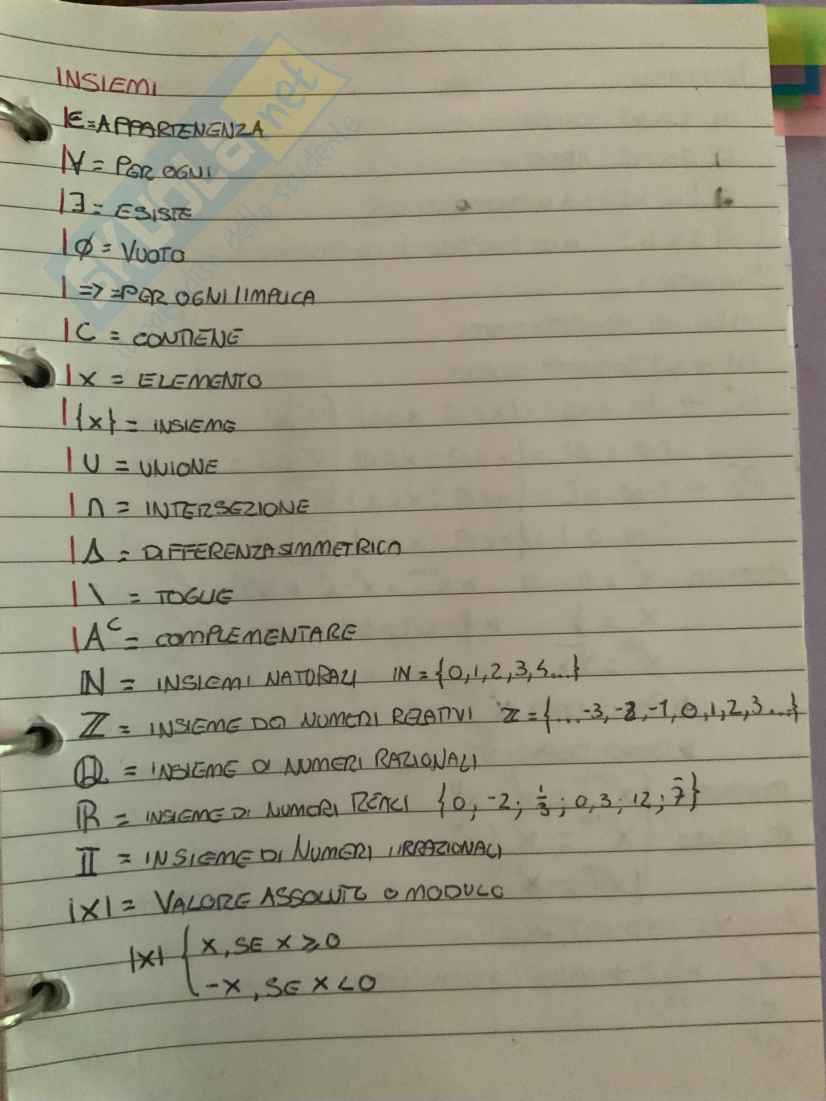 INSIEMI
∈ = APPARTENENZA
∀ = PER OGNI
∃ = ESISTE
Ø = VUOTO
=> = PER OGNI / IMPLICA
C = CONTIENE
X = ELEMENTO
{x} = INSIEME
U = UNIONE
∩ = INTERSEZIONE
Δ = DIFFERENZA SIMMETRICA
\ = TOGLIE
A^C = COMPLEMENTARE
ℕ = INSIEMI NATURALI IN = {0,1,2,3,4...}
ℤ = INSIEME DEI NUMERI RELATIVI ℤ = {...-3,-2,-1,0,1,2,3...}
ℚ = INSIEME DI NUMERI RAZIONALI
ℝ = INSIEME DI NUMERI REALI {0, -2; 1/3; 0,3; 12; 7̄}
𝕀 = INSIEME DI NUMERI IRRAZIONALI
|X| = VALORE ASSOLUTO O MODULO
|x| { X, SE X ≥ 0
-X, SE X < 0
SKUOLA.net